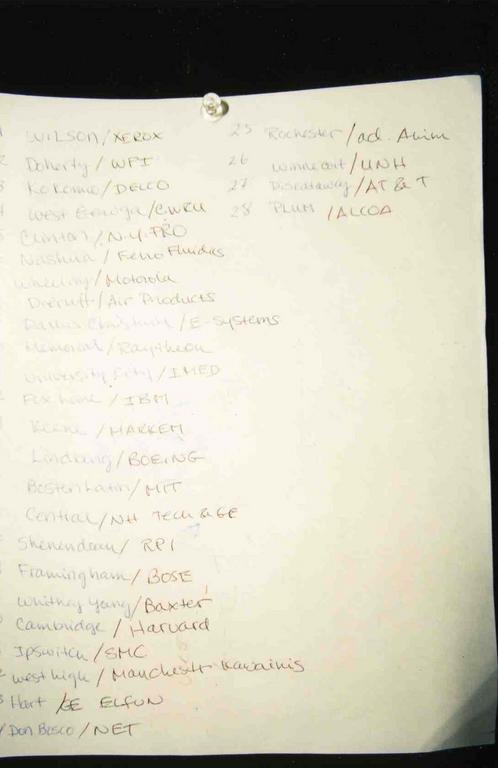 WILSON/XEROX
2 Doherty / WPI
3 Kokomo/DELCO
West Genesga/CWRU
Clinton/N.Y.PRO
Nashua / Ferro Fluidics
Wheeling/Motorola
Dieruff/Air Products
/E-Systems
Memorial/Raytheon
University City/IMED
Fox Lane / IBM
Keene / MARKEM
Lindberg/BOEING
Boston Latin/MIT
Central/NH Tech & GE
Shenendean/ RPI
Framingham/BOSE
Whitney Young/Baxter
Cambridge / Harvard
Ipswitch/SMC
West high / Manchestr Kawainis
Hart /GE ELFUN
Don Bosco / NET
25 Rochester/ad. Anim
26 Winnecont/UNH
27 Piscataway/AT&T
28 PLUM /ALCOA